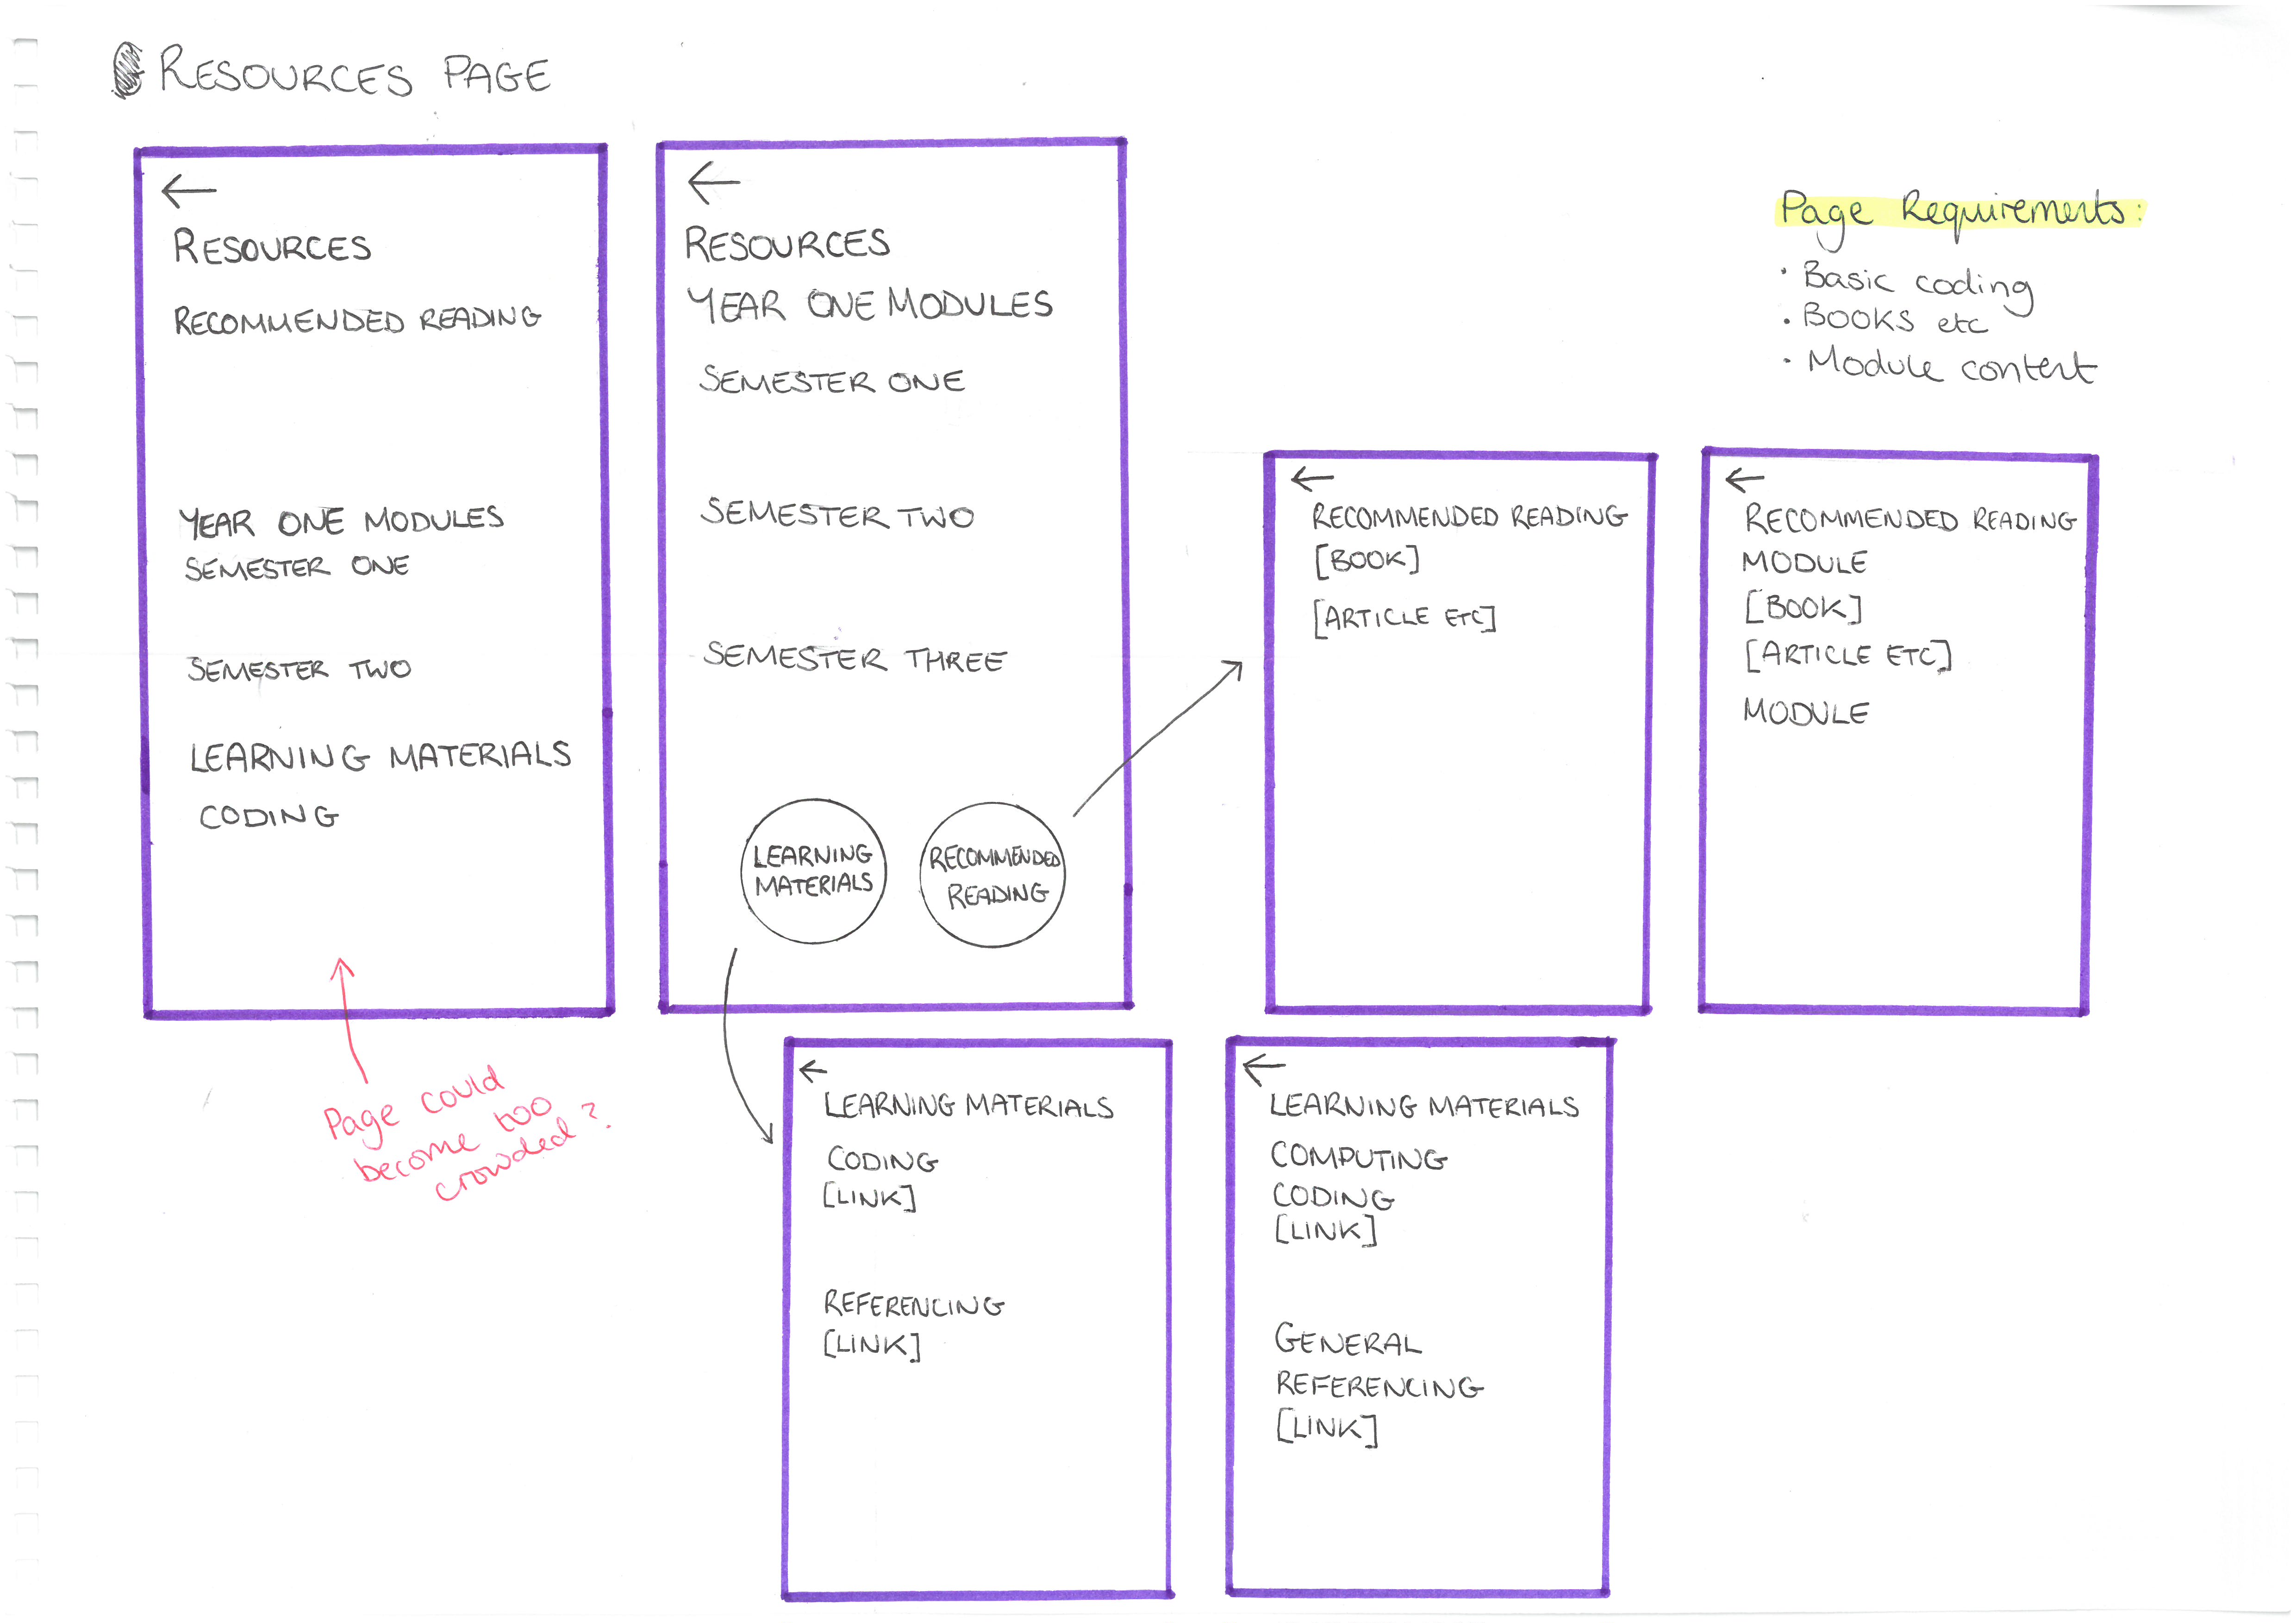 RESOURCES PAGE
←
RESOURCES
RECOMMENDED READING
YEAR ONE MODULES
SEMESTER ONE
SEMESTER TWO
LEARNING MATERIALS
CODING
Page could
become too
crowded?
←
RESOURCES
YEAR ONE MODULES
SEMESTER ONE
SEMESTER TWO
SEMESTER THREE
LEARNING
MATERIALS
RECOMMENDED
READING
Page Requirements:
· Basic coding
· BOOKS etc
· Module content
←
RECOMMENDED READING
[BOOK]
[ARTICLE ETC]
←
RECOMMENDED READING
MODULE
[BOOK]
[ARTICLE ETC]
MODULE
←
LEARNING MATERIALS
CODING
[LINK]
REFERENCING
[LINK]
←
LEARNING MATERIALS
COMPUTING
CODING
[LINK]
GENERAL
REFERENCING
[LINK]